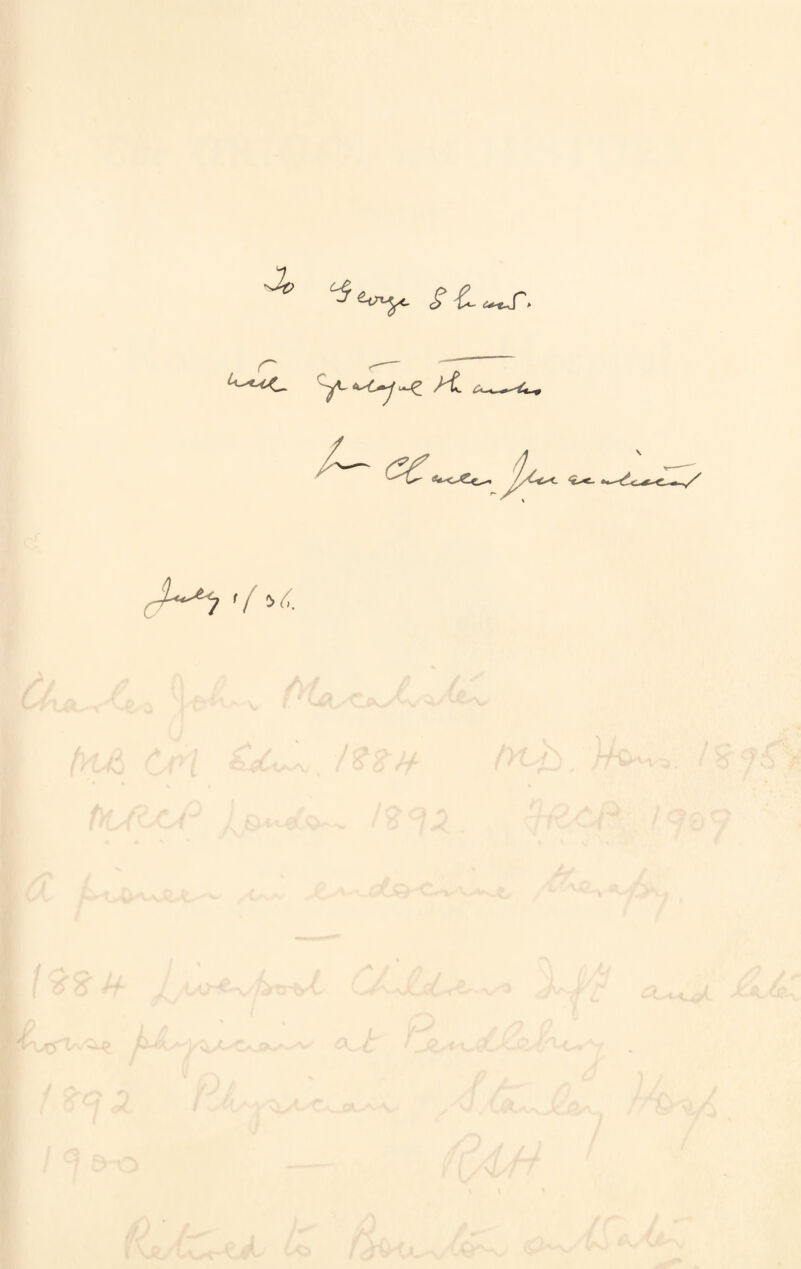 To George Stewart.
with grateful thanks
from Charles Macalister
July 1/36.
Charles John Macalister
MB CM Edin. 1884 MD. Hons. 1895
MRCP London 1892. FRCP 1909
A pioneer in endocrine therapy.
1884 Liverpool Childrens Infy and later
house physician at Pendlebury.
1892 Physician Stanley Hosp.
1900 — RSH
Retired to Bourton on Water